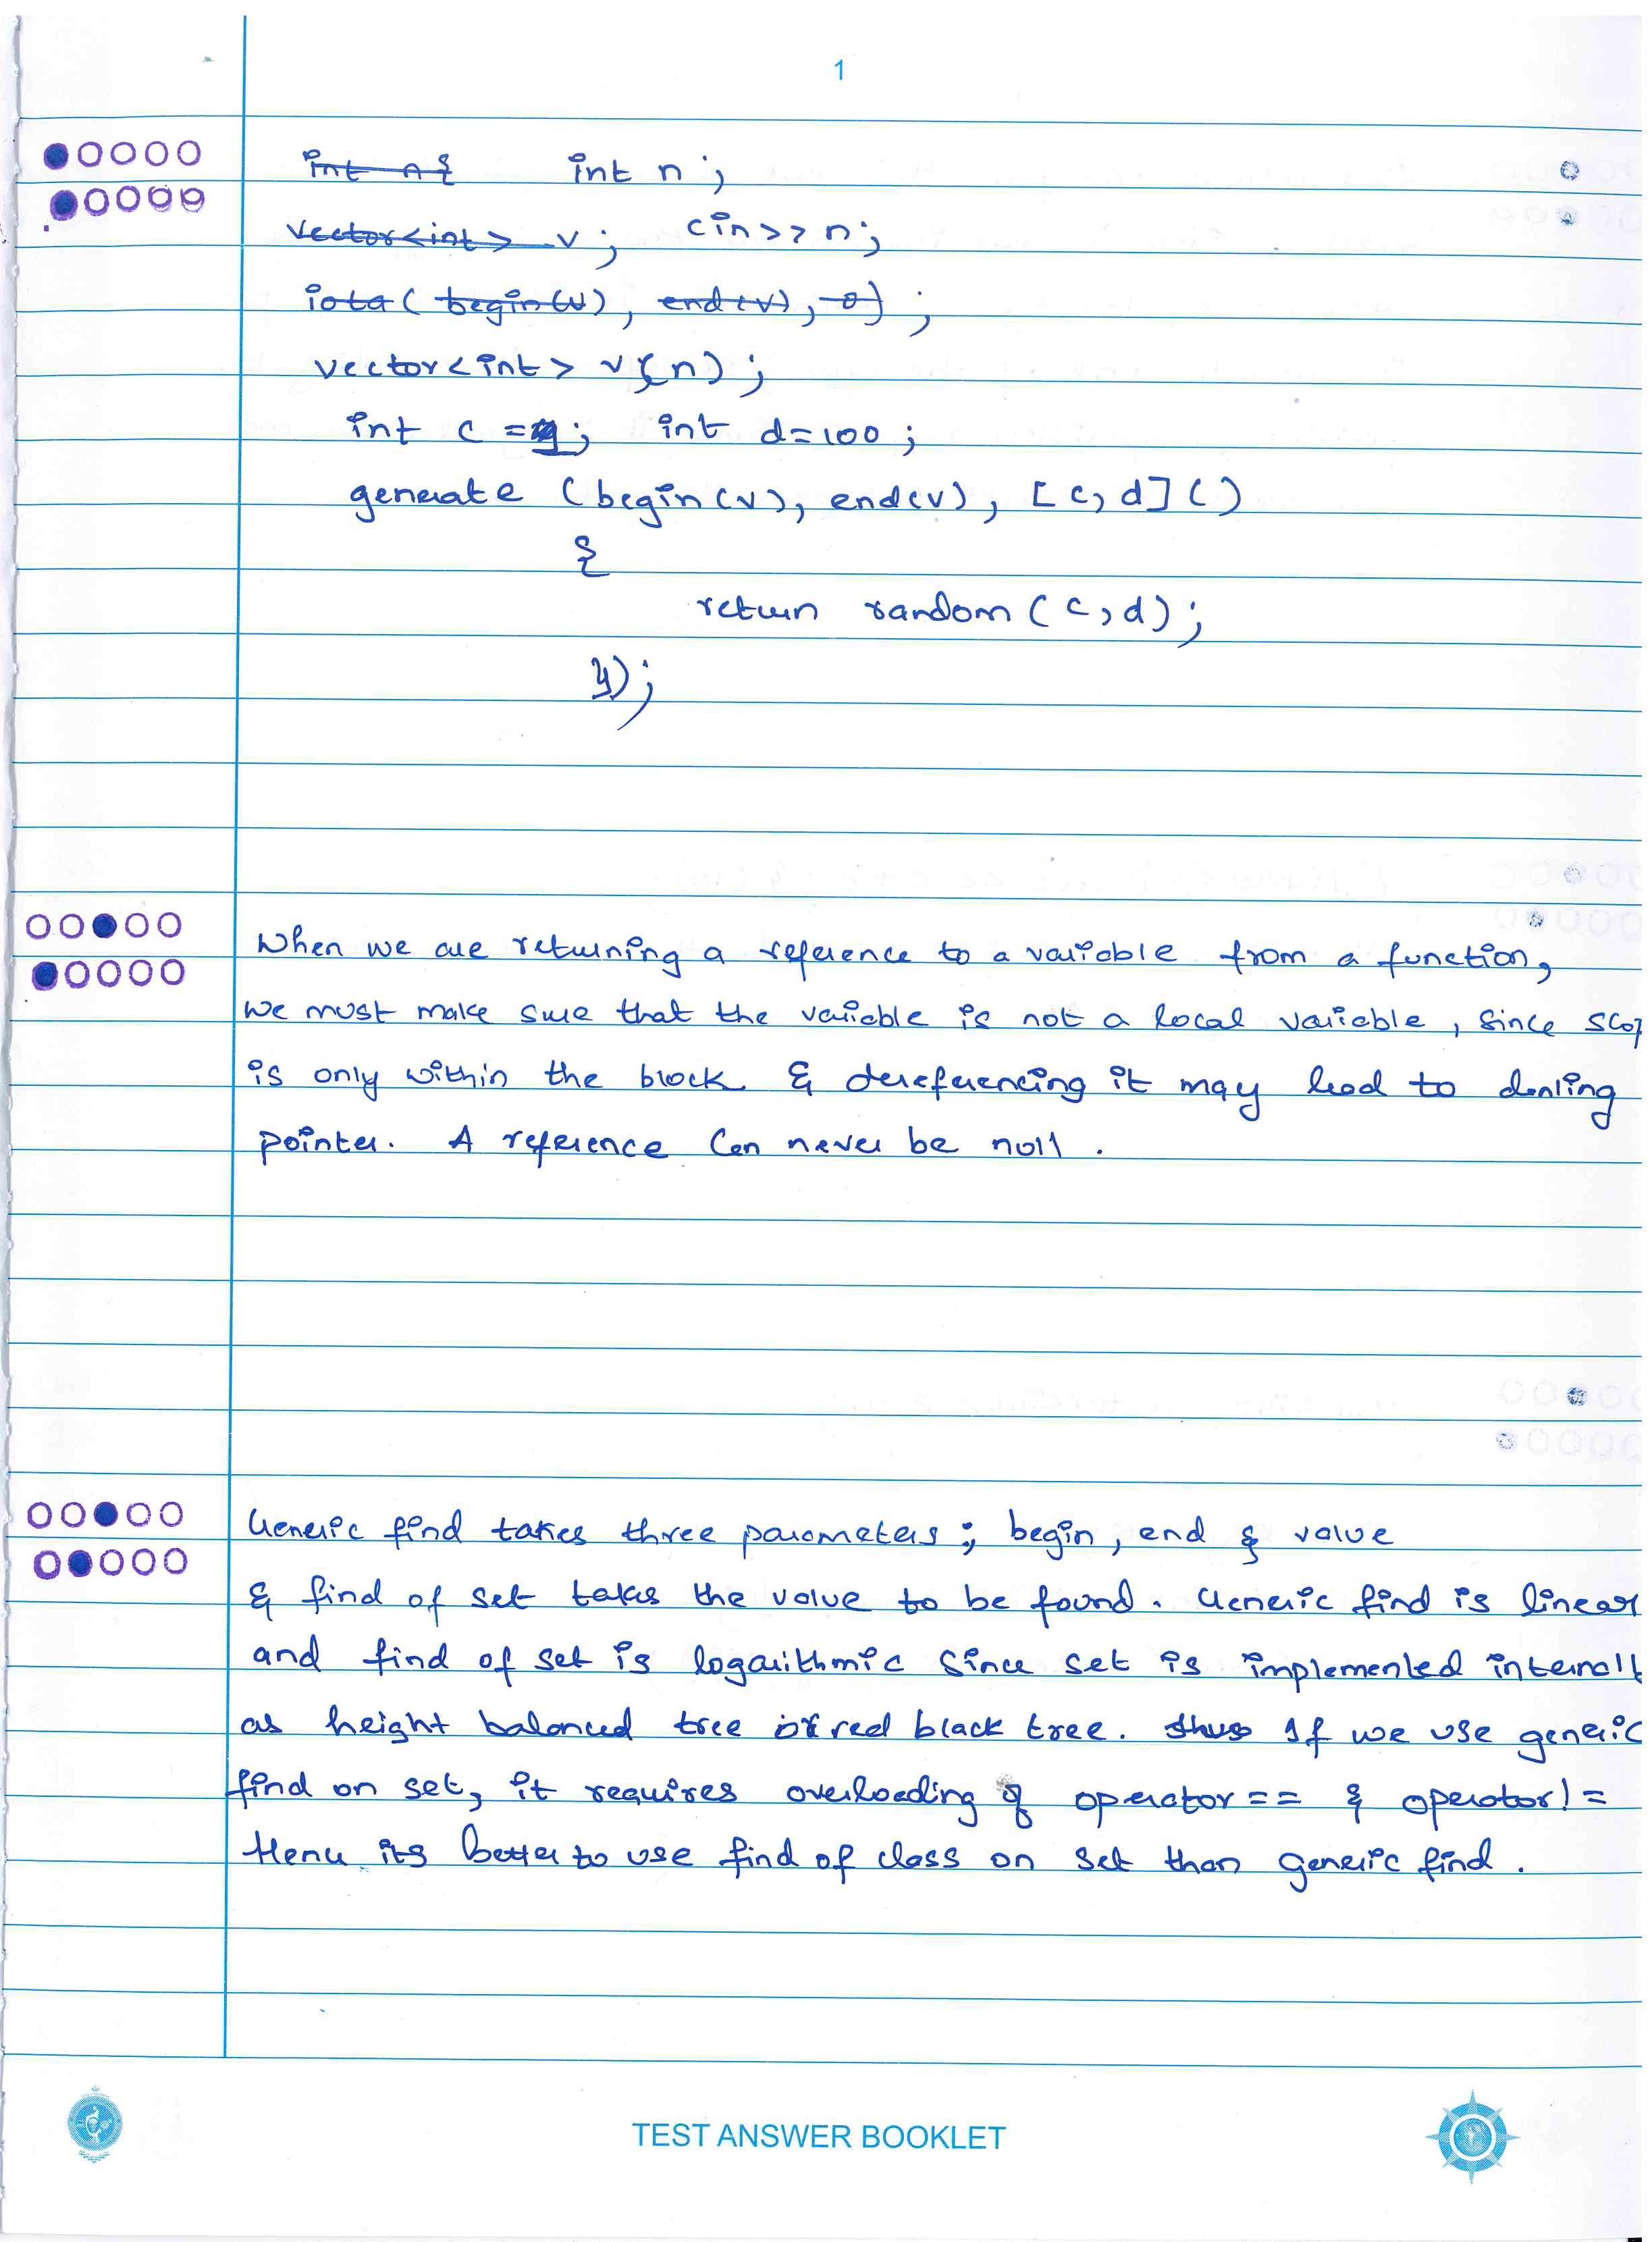 1
int n{ int n;
vector<int> v; cin>>n;
iota( begin(v), end(v), 0);
vector<int> v(n);
int c = ; int d=100;
generate (begin(v), end(v), [c, d]()
{
return random (c,d);
});
When we are returning a reference to a variable from a function,
we must make sure that the variable is not a local variable, since scop
is only within the block & dereferencing it may lead to danling
pointer. A reference can never be null.
Generic find takes three parameters; begin, end & value
& find of set takes the value to be found. Generic find is linear
and find of set is logarithmic since set is implemented internall
as height balanced tree or red black tree. thus If we use generic
find on set, it requires overloading of operator== & operator!=
Hence its better to use find of class on set than generic find.
TEST ANSWER BOOKLET